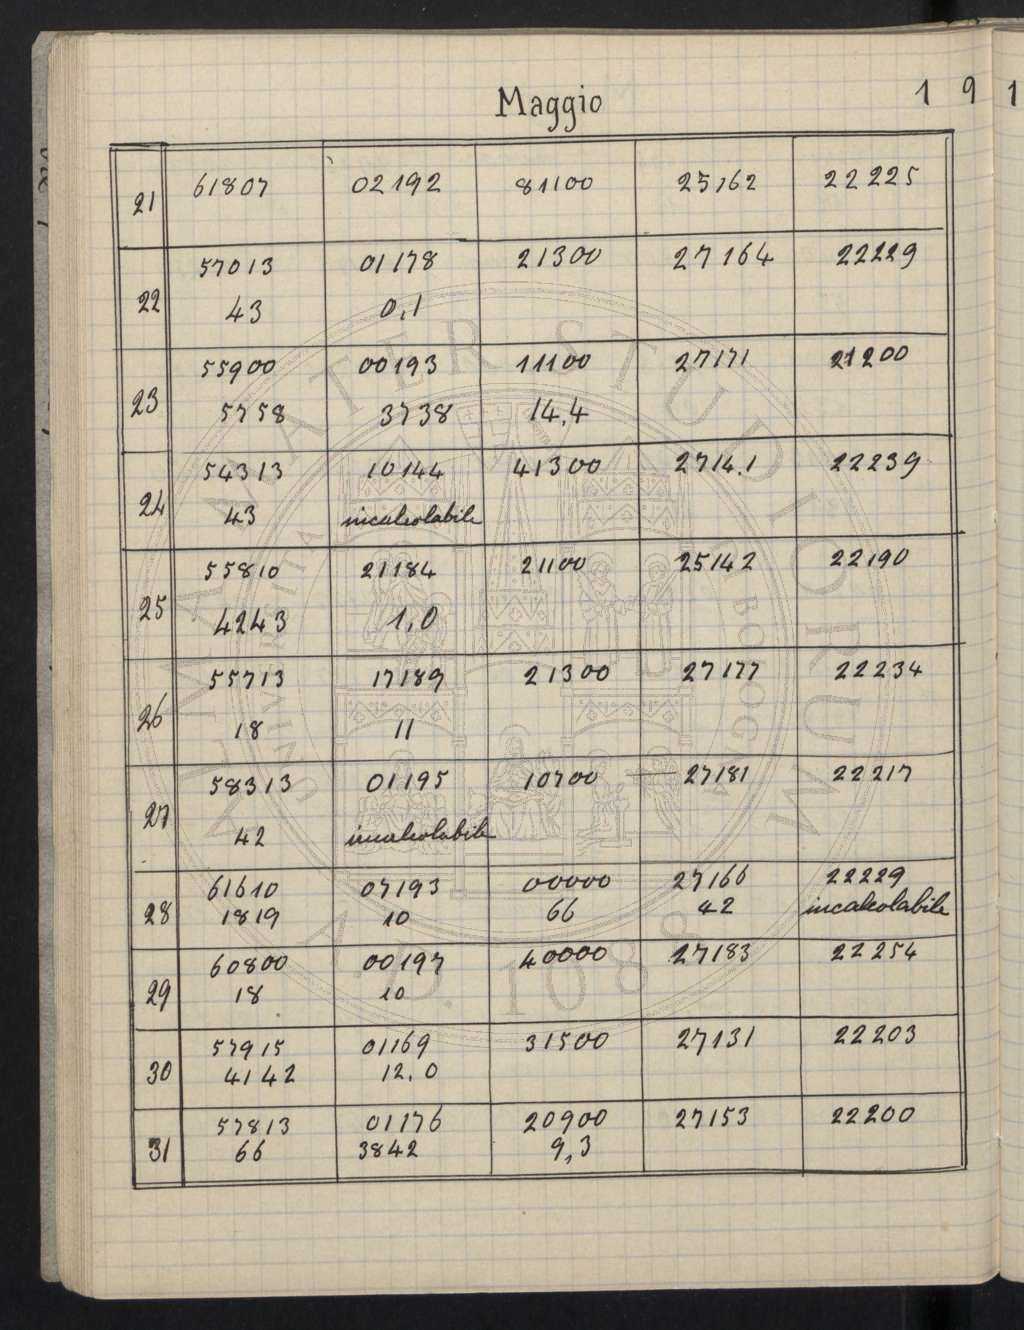 Maggio 1 9 1
21 61807 02192 81100 25162 22225
57013 01178 21300 27164 22229
22 43 0,1
55900 00193 11100 27171 21200
23 5758 3738 14,4
54313 10144 41300 2714.1 22239
24 43 incalcolabile
55810 21184 21100 25142 22190
25 4243 1,0
55713 17189 21300 27177 22234
26 18 11
58313 01195 10700 27181 22217
27 42 incalcolabile
61610 07193 00000 27166 22229
28 1819 10 66 42 incalcolabile
60800 00197 40000 27183 22254
29 18 10
57915 01169 31500 27131 22203
30 4142 12.0
57813 01176 20900 27153 22200
31 66 3842 9,3
ALMA MATER STUDIORUM
A.D. 1088